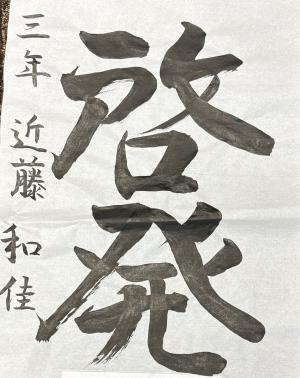 啓発
三年 近藤和佳